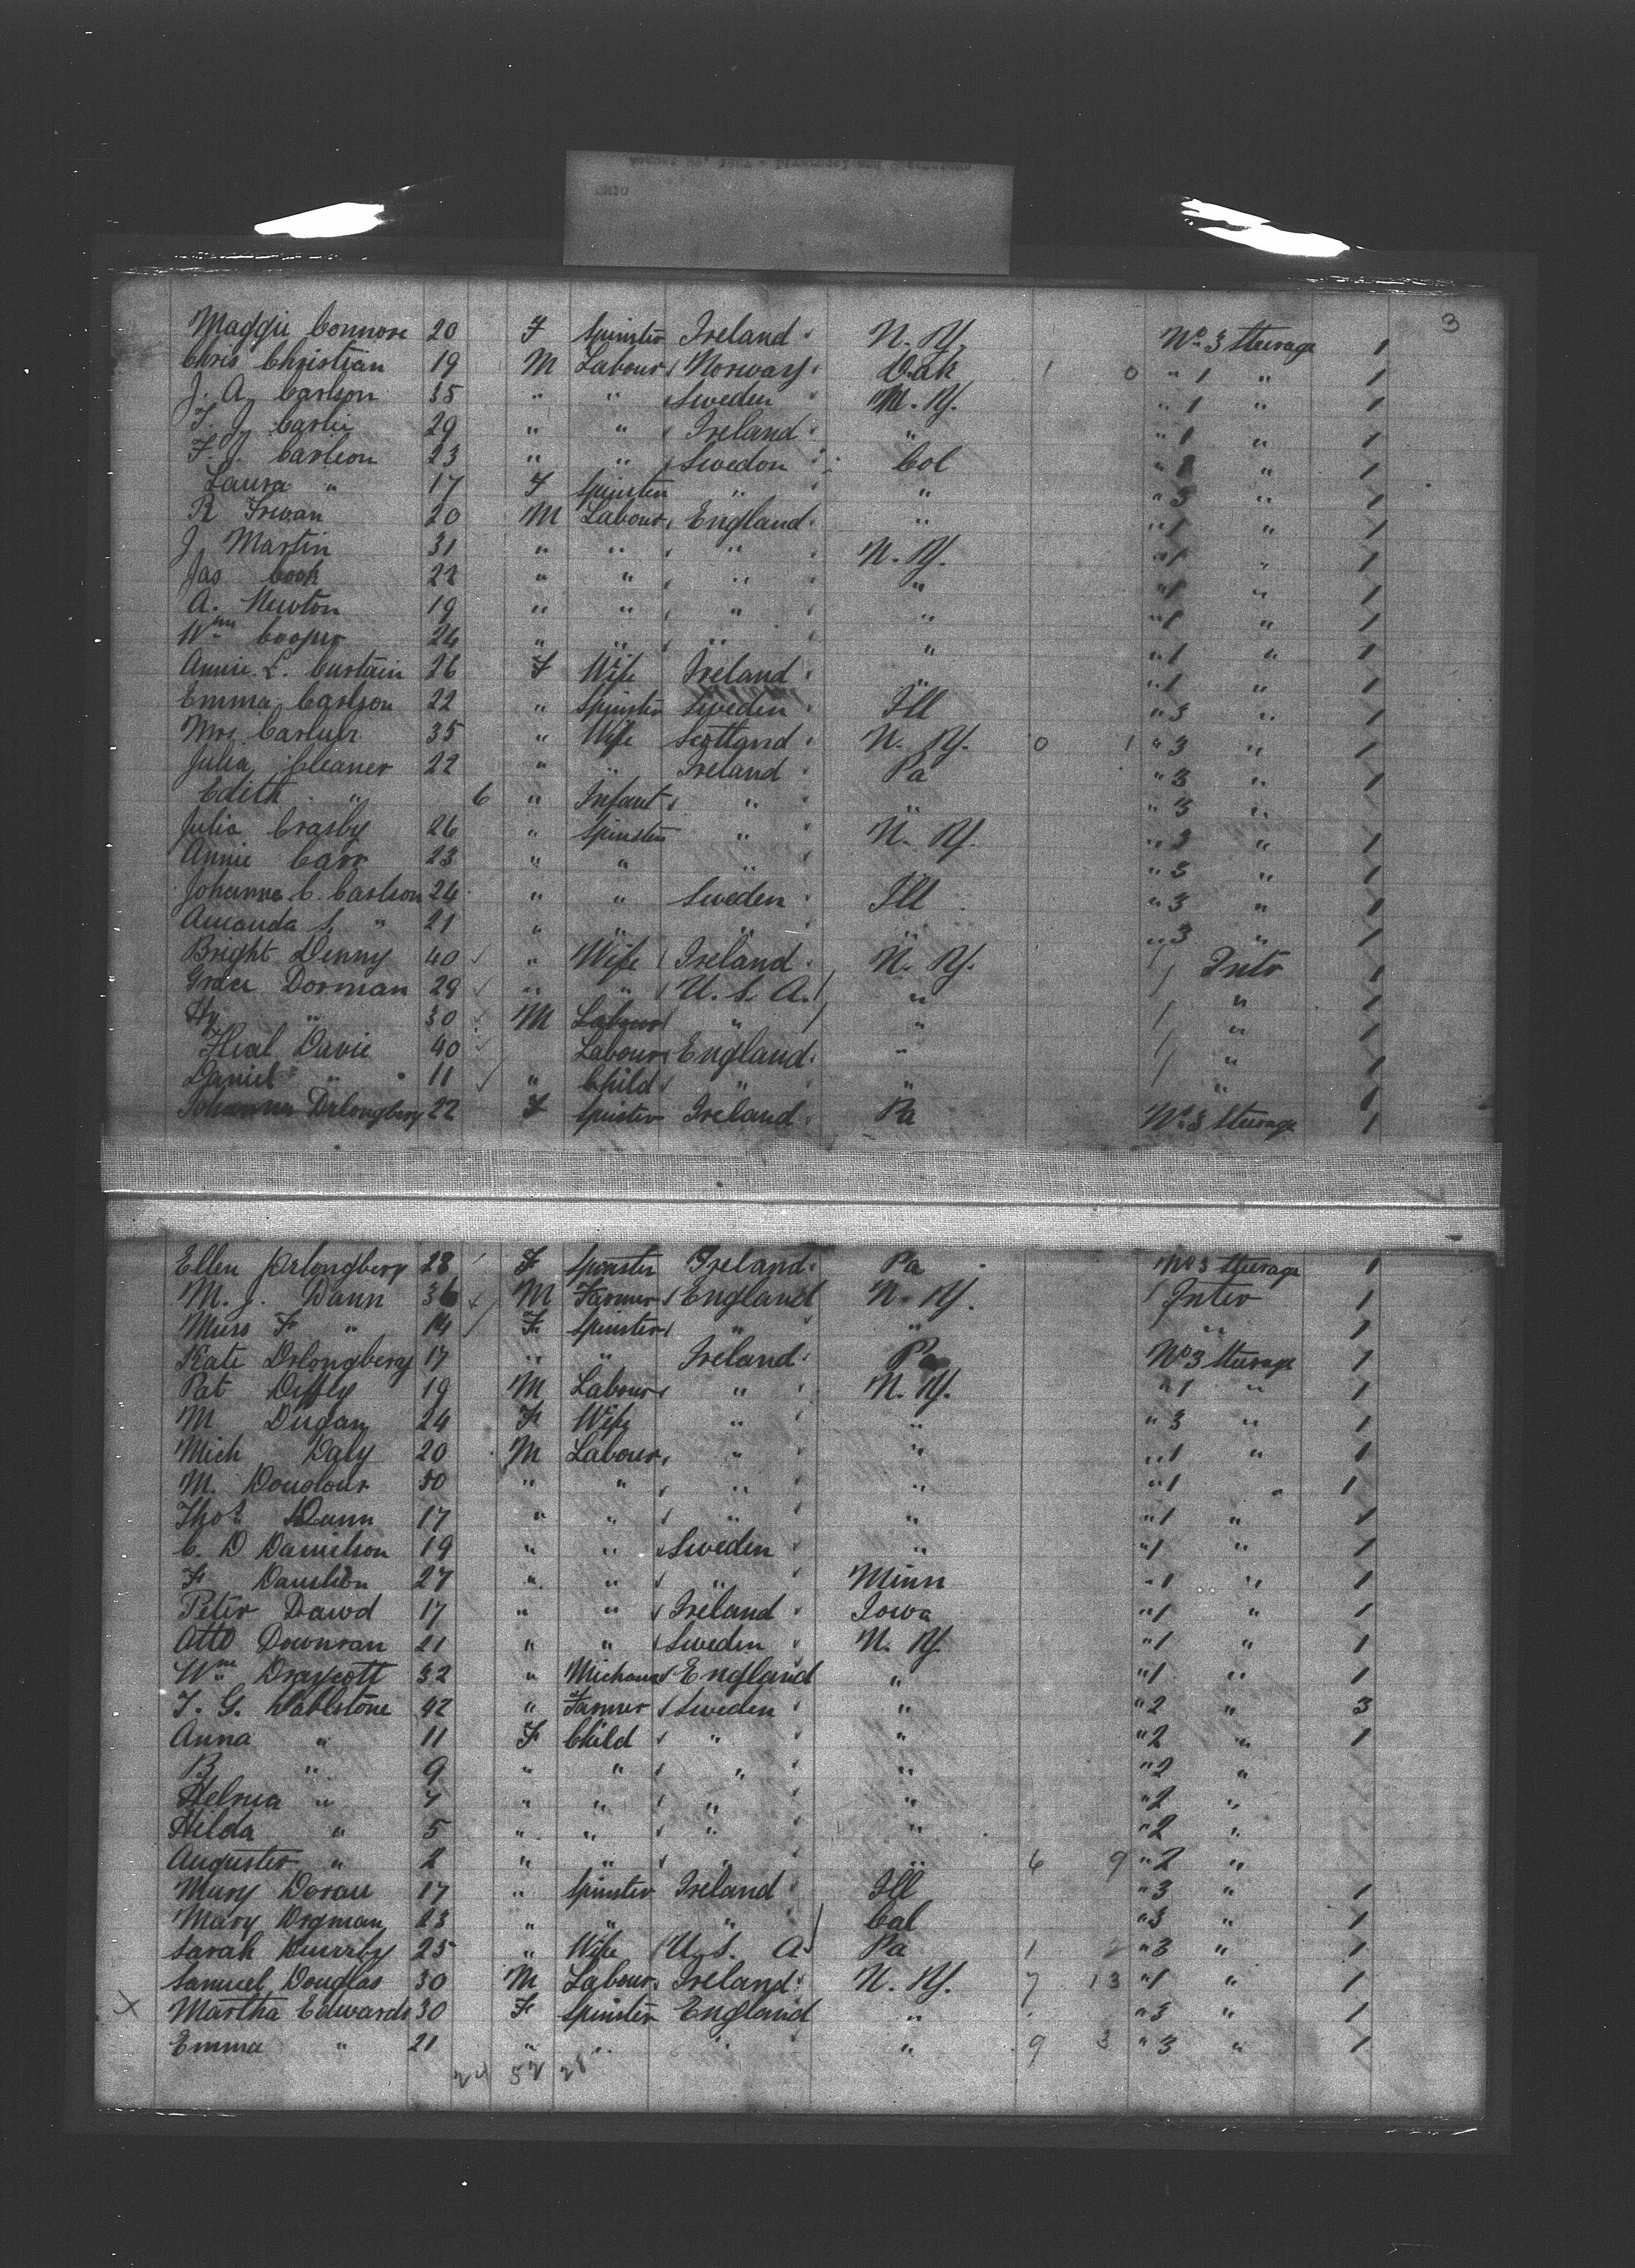 3
Maggie Connore 20 F Spinster Ireland N. Y. No 3 Steerage 1
Chris Christian 19 M Labour Norway Dak 1 0 " 1 " 1
J. A. Carlson 35 " " Sweden N. Y. " 1 " 1
T. J. 29 " " Ireland " " 1 " 1
F. J. Carlson 23 " " Sweden Col " 1 " 1
Laura " 17 F Spinster " " " 3 " 1
R 20 M Labour England " " 1 " 1
J Martin 31 " " " N. Y. " 1 " 1
Jas Cook 22 " " " " " 1 " 1
A. Newton 19 " " " " " 1 " 1
Wm Cooper 24 " " " " " 1 " 1
Annie L. Curtain 26 F Wife Ireland " " 1 " 1
Emma Carlson 22 " Spinster Sweden Ill " 3 " 1
Mrs 35 " Wife Scotland N. Y. 0 1 " 3 " 1
Julia Cleaner 22 " " Ireland Pa " 3 " 1
Edith " 6 " Infant " " " 3 "
Julia Crasby 26 " Spinster " N. Y. " 3 " 1
Annie Carr 23 " " " " 3 " 1
Johanna C. Carlson 24 " " Sweden Ill " 3 " 1
Amanda S. " 21 " " " " " 3 " 1
Bright Denny 40 " Wife Ireland N. Y. Inter 1
Grace Dorman 29 " " U. S. A. " " 1
Hy " 30 M Labour " " " 1
Davie 40 Labour England " " 1
Daniel " 11 " Child " " " 1
Johanna Drlongbery 22 F Spinster Ireland Pa No 3 Steerage 1
Ellen Drlongbery 28 F Spinster Ireland Pa No 3 Steerage 1
M. J. Dann 36 M Farmer England N. Y. Inter 1
Miss F " 14 F Spinster " " " 1
Kate Drlongbery 17 " " Ireland Pa No 3 Steerage 1
Pat Diffly 19 M Labour " N. Y. " 1 " 1
M Dugan 24 F Wife " " " 3 " 1
Mich Daly 20 M Labour " " " 1 " 1
M. 50 " " " " " 1 " 1
Thos Dunn 17 " " " " " 1 " 1
C. D Danielson 19 " " Sweden " " 1 " 1
F 27 " " " Minn " 1 " 1
Peter Dawd 17 " " Ireland Iowa " 1 " 1
Atto 21 " " Sweden N. Y. " 1 " 1
Wm Draycott 32 " England " " 1 " 1
J. G. Dahlstone 42 " Farmer Sweden " " 2 " 3
Anna " 11 F Child " " " 2 " 1
B " 9 " " " " " 2 "
" 7 " " " " " 2 "
Hilda " 5 " " " " " 2 "
Auguster " 2 " " " " 6 9 " 2 "
Mary Doran 17 " Spinster Ireland Ill " 3 " 1
Mary Dogman 23 " " " Cal " 3 " 1
Sarah 25 " Wife U. S. A Pa 1 2 " 3 " 1
Samuel Douglas 30 M Labour Ireland N. Y. 7 13 " 1 " 1
X Martha Edwards 30 F Spinster England " " 3 " 1
Emma " 21 " " " " 9 3 " 3 " 1
24 52 28